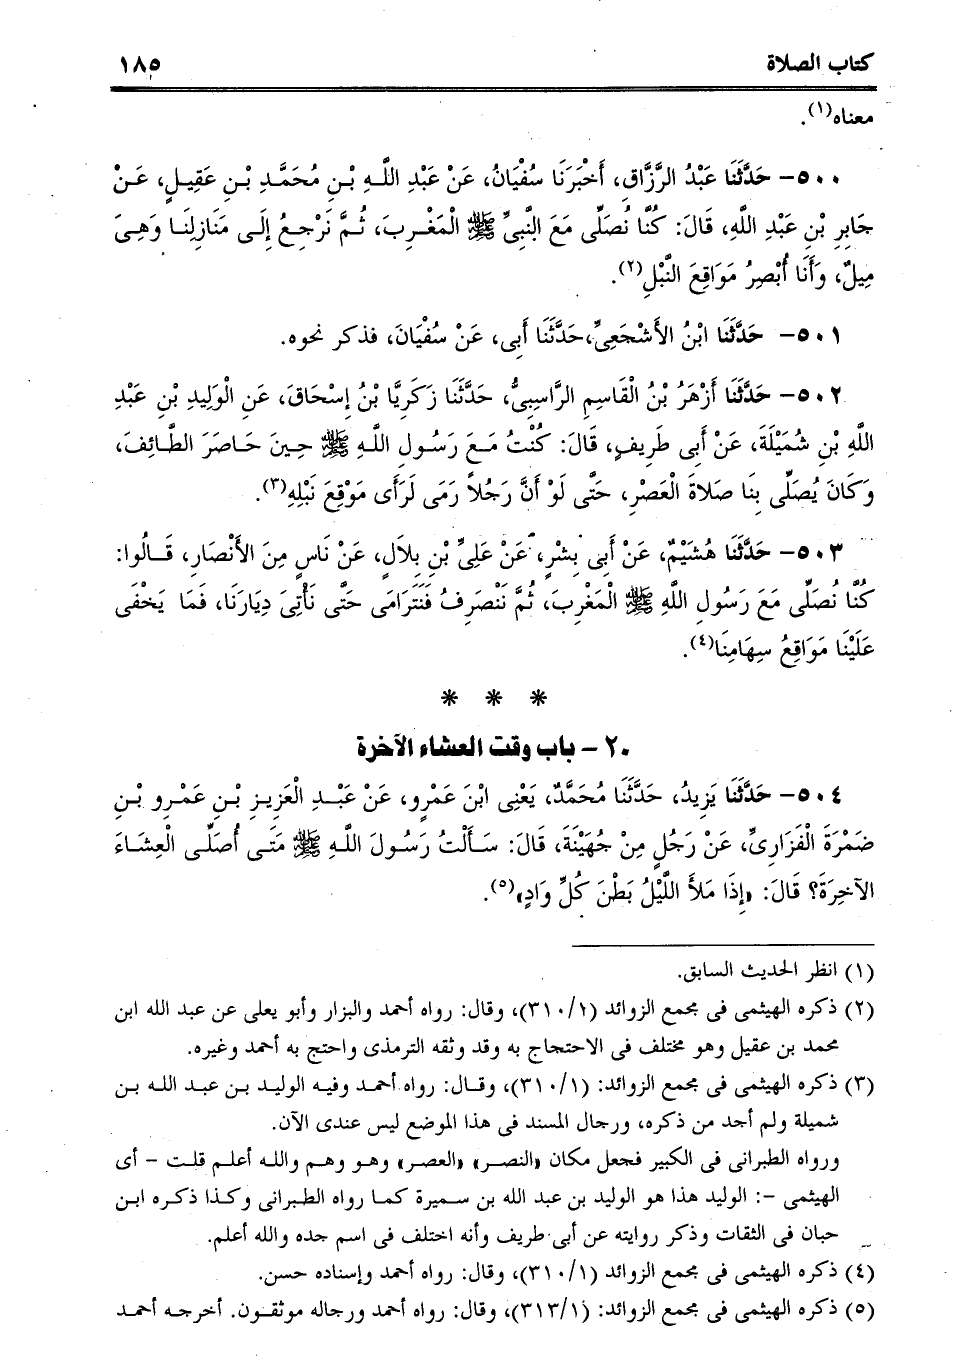 كتاب الصلاة ١٨٥
معناه(١).
٥٠٠- حَدَّثَنَا عَبْدُ الرَّزَّاقِ، أَخْبَرَنَا سُفْيَانُ، عَنْ عَبْدِ اللَّهِ بْنِ مُحَمَّدِ بْنِ عَقِيلٍ، عَنْ
جَابِرِ بْنِ عَبْدِ اللَّهِ، قَالَ: كُنَّا نُصَلِّى مَعَ النَّبِىِّ ﷺ الْمَغْرِبَ، ثُمَّ نَرْجِعُ إِلَى مَنَازِلِنَا وَهِىَ
مِيلٌ، وَأَنَا أُبْصِرُ مَوَاقِعَ النَّبْلِ(٢).
٥٠١- حَدَّثَنَا ابْنُ الأَشْجَعِىِّ، حَدَّثَنَا أَبِى، عَنْ سُفْيَانَ، فذكر نحوه.
٥٠٢- حَدَّثَنَا أَزْهَرُ بْنُ الْقَاسِمِ الرَّاسِبِىُّ، حَدَّثَنَا زَكَرِيَّا بْنُ إِسْحَاقَ، عَنِ الْوَلِيدِ بْنِ عَبْدِ
اللَّهِ بْنِ شُمَيْلَةَ، عَنْ أَبِى طَرِيفٍ، قَالَ: كُنْتُ مَعَ رَسُولِ اللَّهِ ﷺ حِينَ حَاصَرَ الطَّائِفَ،
وَكَانَ يُصَلِّى بِنَا صَلاةَ الْعَصْرِ، حَتَّى لَوْ أَنَّ رَجُلاً رَمَى لَرَأَى مَوْقِعَ نَبْلِهِ(٣).
٥٠٣- حَدَّثَنَا هُشَيْمٌ، عَنْ أَبِى بِشْرٍ، عَنْ عَلِىِّ بْنِ بِلاَلٍ، عَنْ نَاسٍ مِنَ الأَنْصَارِ، قَالُوا:
كُنَّا نُصَلِّى مَعَ رَسُولِ اللَّهِ ﷺ الْمَغْرِبَ، ثُمَّ نَنْصَرِفُ فَنَتَرَامَى حَتَّى نَأْتِىَ دِيَارَنَا، فَمَا يَخْفَى
عَلَيْنَا مَوَاقِعُ سِهَامِنَا(٤).
* * *
٢٠ - باب وقت العشاء الآخرة
٥٠٤- حَدَّثَنَا يَزِيدُ، حَدَّثَنَا مُحَمَّدٌ، يَعْنِى ابْنَ عَمْرٍو، عَنْ عَبْدِ الْعَزِيزِ بْنِ عَمْرِو بْنِ
ضَمْرَةَ الْفَزَارِىِّ، عَنْ رَجُلٍ مِنْ جُهَيْنَةَ، قَالَ: سَأَلْتُ رَسُولَ اللَّهِ ﷺ مَتَى أُصَلِّى الْعِشَاءَ
الآخِرَةَ؟ قَالَ: «إِذَا مَلأَ اللَّيْلُ بَطْنَ كُلِّ وَادٍ»(٥).
(١) انظر الحديث السابق.
(٢) ذكره الهيثمى فى مجمع الزوائد (٣١٠/١)، وقال: رواه أحمد والبزار وأبو يعلى عن عبد الله ابن
محمد بن عقيل وهو مختلف فى الاحتجاج به وقد وثقه الترمذى واحتج به أحمد وغيره.
(٣) ذكره الهيثمى فى مجمع الزوائد: (٣١٠/١)، وقال: رواه أحمد وفيه الوليد بن عبد الله بن
شميلة ولم أجد من ذكره، ورجال المسند فى هذا الموضع ليس عندى الآن.
ورواه الطبرانى فى الكبير فجعل مكان «النصر» «العصر» وهو وهم والله أعلم قلت - أى
الهيثمى -: الوليد هذا هو الوليد بن عبد الله بن سميرة كما رواه الطبرانى وكذا ذكره ابن
حبان فى الثقات وذكر روايته عن أبى طريف وأنه اختلف فى اسم جده والله أعلم.
(٤) ذكره الهيثمى فى مجمع الزوائد (٣١٠/١)، وقال: رواه أحمد وإسناده حسن.
(٥) ذكره الهيثمى فى مجمع الزوائد: (٣١٣/١)، وقال: رواه أحمد ورجاله موثقون. أخرجه أحمد